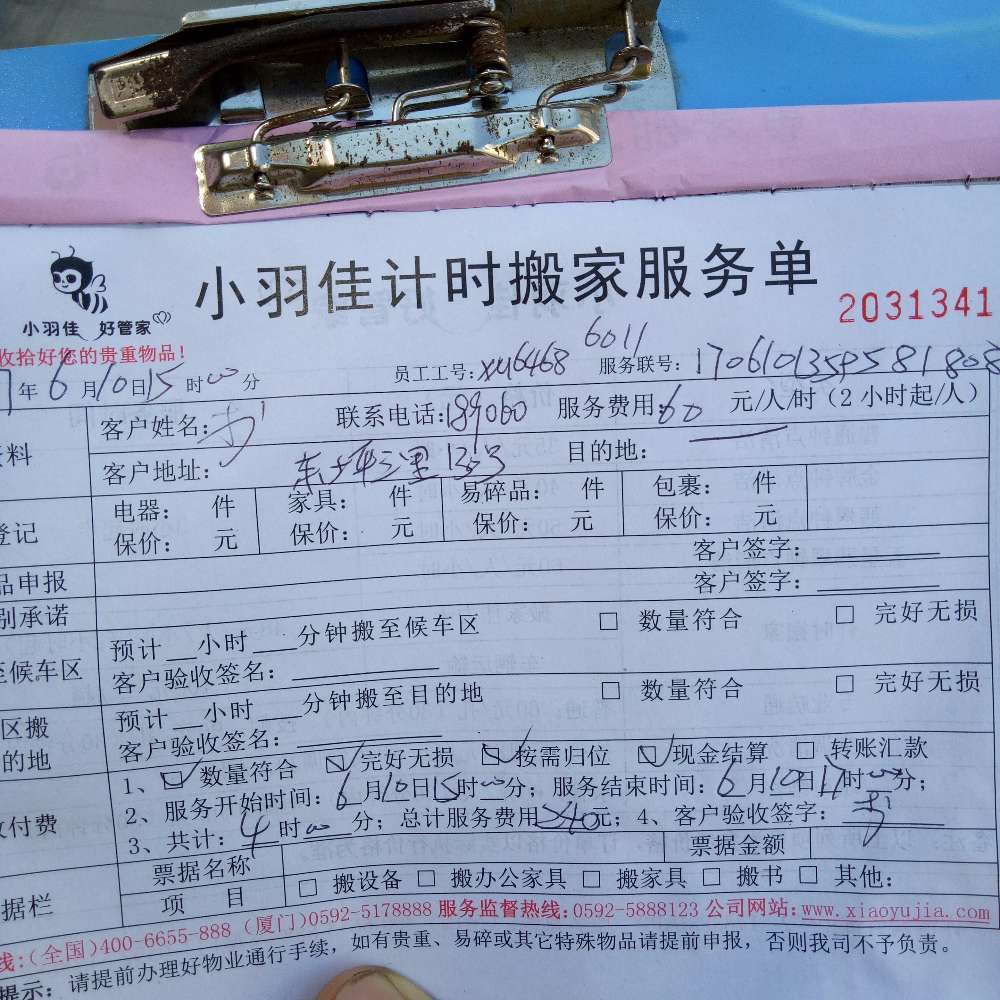 小羽佳计时搬家服务单
小羽佳 好管家
2031341
收拾好您的贵重物品!
年6月10日15时00分 员工工号:xy6468 6011 服务联号:
客户姓名: 联系电话:189060 服务费用:60 元/人/时(2小时起/人)
资料
客户地址: 目的地:
电器: 件 家具: 件 易碎品: 件 包裹: 件
登记
保价: 元 保价: 元 保价: 元 保价: 元
客户签字:
品申报
客户签字:
别承诺
预计___小时___分钟搬至候车区 □ 数量符合 □ 完好无损
至候车区
客户验收签名:
预计___小时___分钟搬至目的地 □ 数量符合 □ 完好无损
区搬
的地
客户验收签名:
1、☑数量符合 ☑完好无损 ☑按需归位 ☑现金结算 □ 转账汇款
2、服务开始时间:6月10日15时00分;服务结束时间:6月10日17时00分;
付费
3、共计:4时00分;总计服务费用240元;4、客户验收签字:
票据名称 票据金额
据栏
项 目 □ 搬设备 □ 搬办公家具 □ 搬家具 □ 搬书 □ 其他:
线:(全国)400-6655-888 (厦门)0592-5178888 服务监督热线:0592-5888123 公司网站:www.xiaoyujia.com
提示:请提前办理好物业通行手续,如有贵重、易碎或其它特殊物品请提前申报,否则我司不予负责。